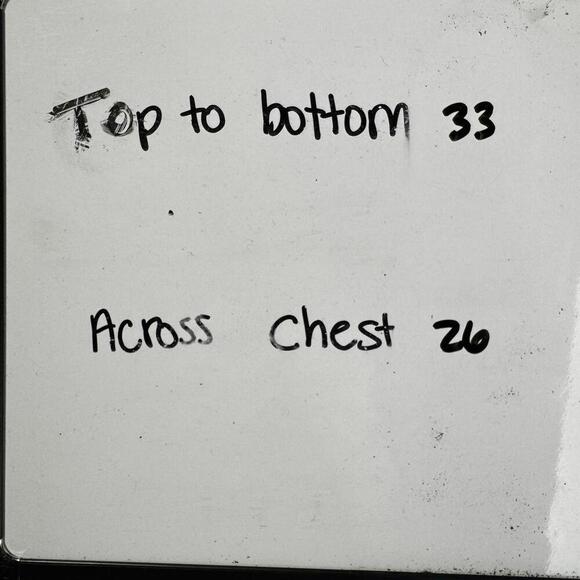 Top to bottom 33
Across chest 26